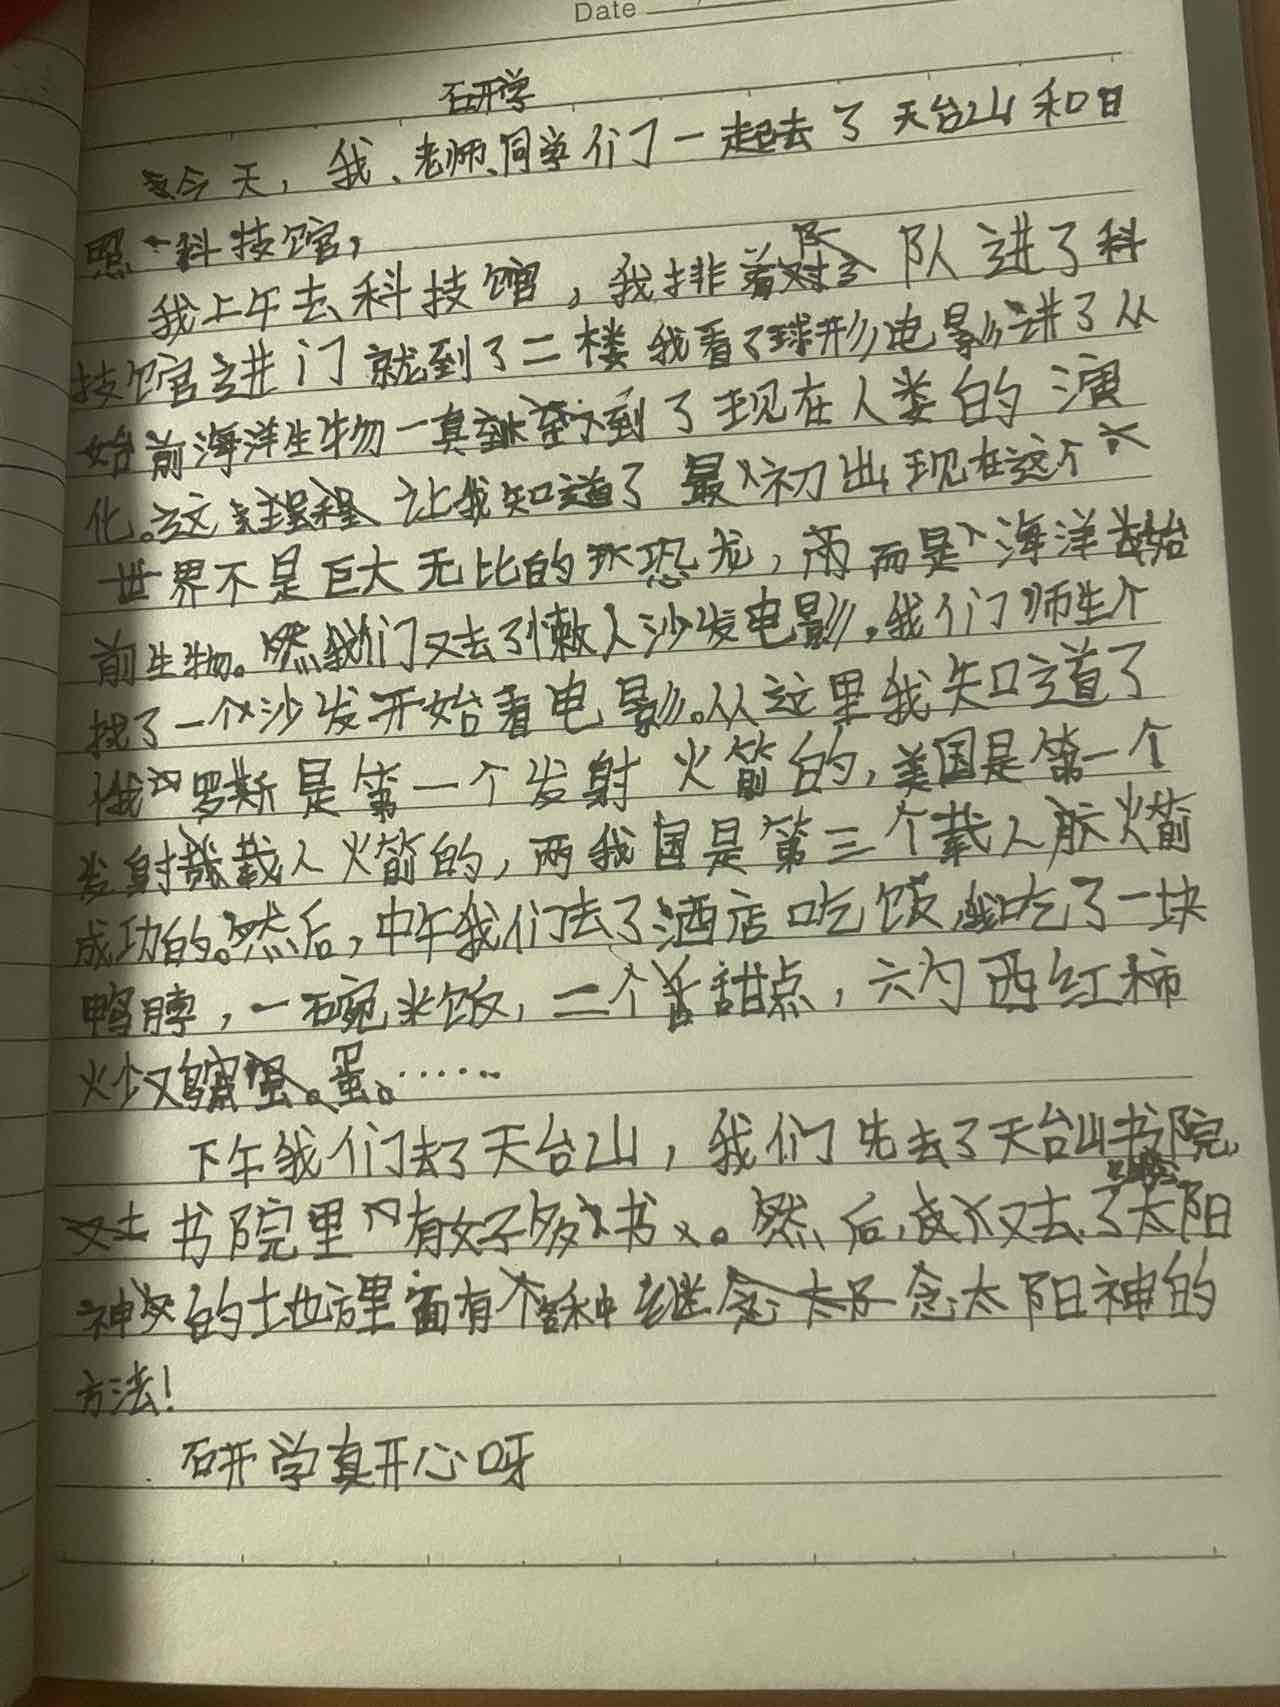 Date
研学
今天，我、老师、同学们一起去了天台山和日
照科技馆，
我上午去科技馆，我排着队进了科
技馆进门就到了二楼我看了球形电影讲了从
始前海洋生物一真到了现在人类的演
化。这让我知道了最初出现在这个
世界不是巨大无比的恐龙，而是海洋始
前生物。然我们又去了懒人沙发电影。我们师生个
找了一个沙发开始看电影。从这里我知道了
俄罗斯是第一个发射火箭的，美国是第一个
发射载人火箭的，两我国是第三个载人航火箭
成功的。然后，中午我们去了酒店吃饭我吃了一块
鸭脖，一碗米饭，二个甜点，六勺西红柿
炒蛋。……
下午我们去了天台山，我们先去了天台山书院
书院里有好多书。然后，我又去了太阳
神的地方里面有念太阳神的
方法！
研学真开心呀